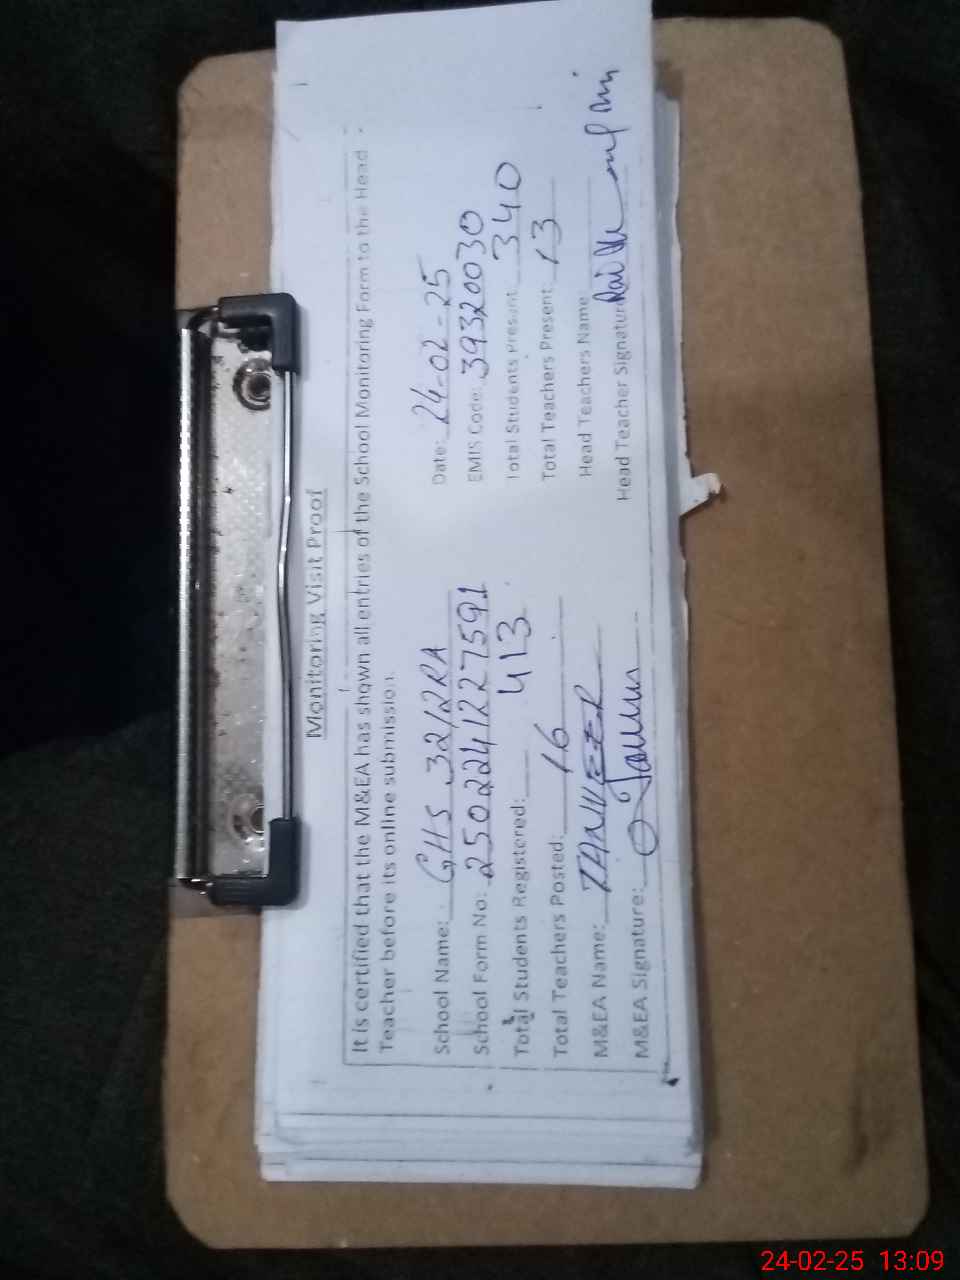 Monitoring Visit Proof
It is certified that the M&EA has shown all entries of the School Monitoring Form to the Head
Teacher before its online submission.
School Name: GHS 32/2RA Date: 24-02-25
School Form No: 2502241227591 EMIS Code: 39320030
Total Students Registered: 413 Total Students Present: 340
Total Teachers Posted: 16 Total Teachers Present: 13
M&EA Name: TANVEER Head Teachers Name:
M&EA Signature: Head Teacher Signature
24-02-25 13:09